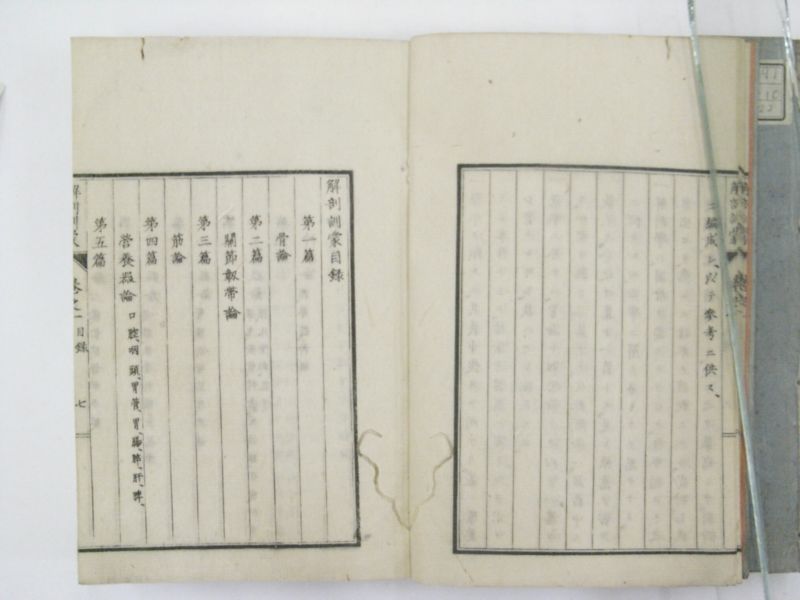 ニ編成シ以テ参考ニ供ス、
解剖訓蒙目録
第一篇
骨論
第二篇
關節靱帶論
第三篇
筋論
第四篇
營養器論 口腔、咽頭、胃管、胃、腸、膵、肝、脾、
第五篇
解剖訓蒙 卷之一 目録 七